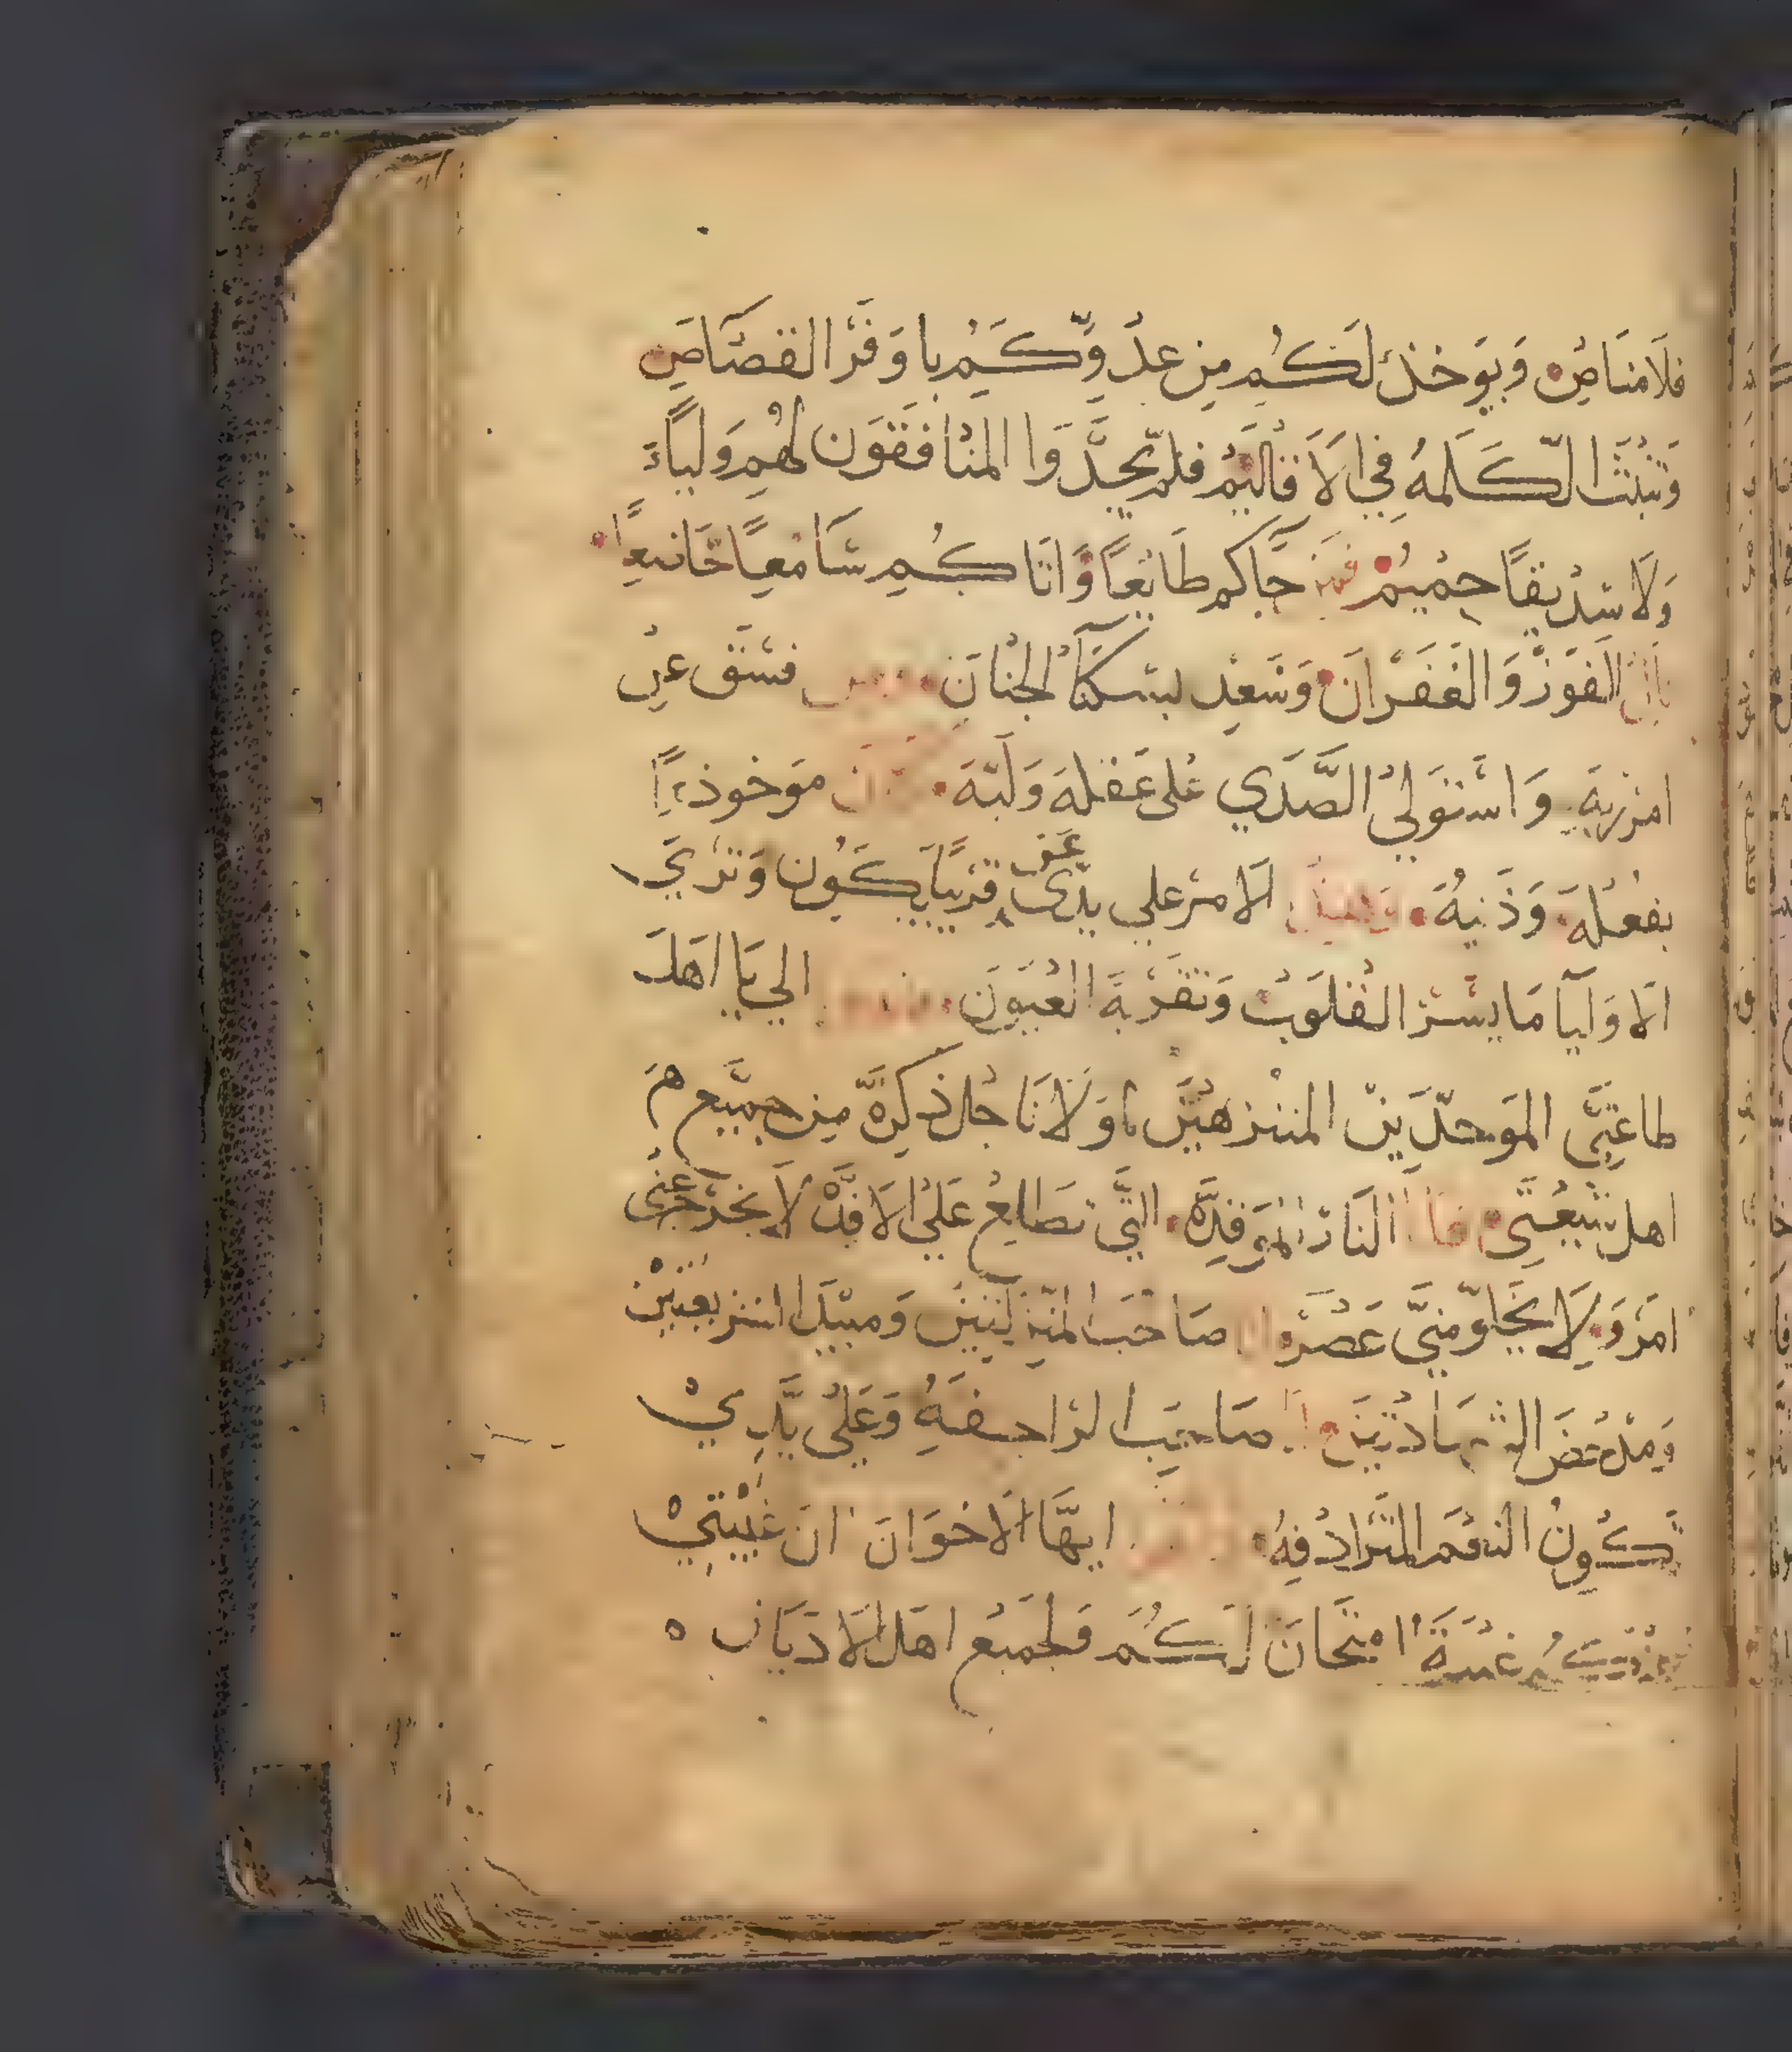 فلا مناص وبوخذ لكم من عدوكم باوفر القصاص
وتبثث الكلمه في الاقاليم فلم يجدوا المنافقون لهم ولياء
ولا شديقا حميم فمن جاكم طايعا واتاكم سامعيا خانعا
الفوز والغفران وسعد بسكنا الجنان فسق عن
امر ربه واستولي الصدي علي عقله ولبه موخوذا
بفعله وذنبه الامر علي يدي عن قريبا يكون وتري
الاوليا ما يسر القلوب وتقر به العيون الي يا اهل
طاعتي الموحدين المنزهين لمولانا جل ذكره من جميع هم
اهل شيعتي انا النار الموقده التي تطالع علي الافده لا يخرج عني
امر ولا ينجا مني عصر صاحب المنزلتين ومبيد الشريعتين
ومدحض الشهادتين صاحب الراجفه وعلي يدي
تكون النعم المترادفه ايها الاخوان ان غيبتي
عنكم غيبة امتحان لكم ولجميع اهل الاديان ه